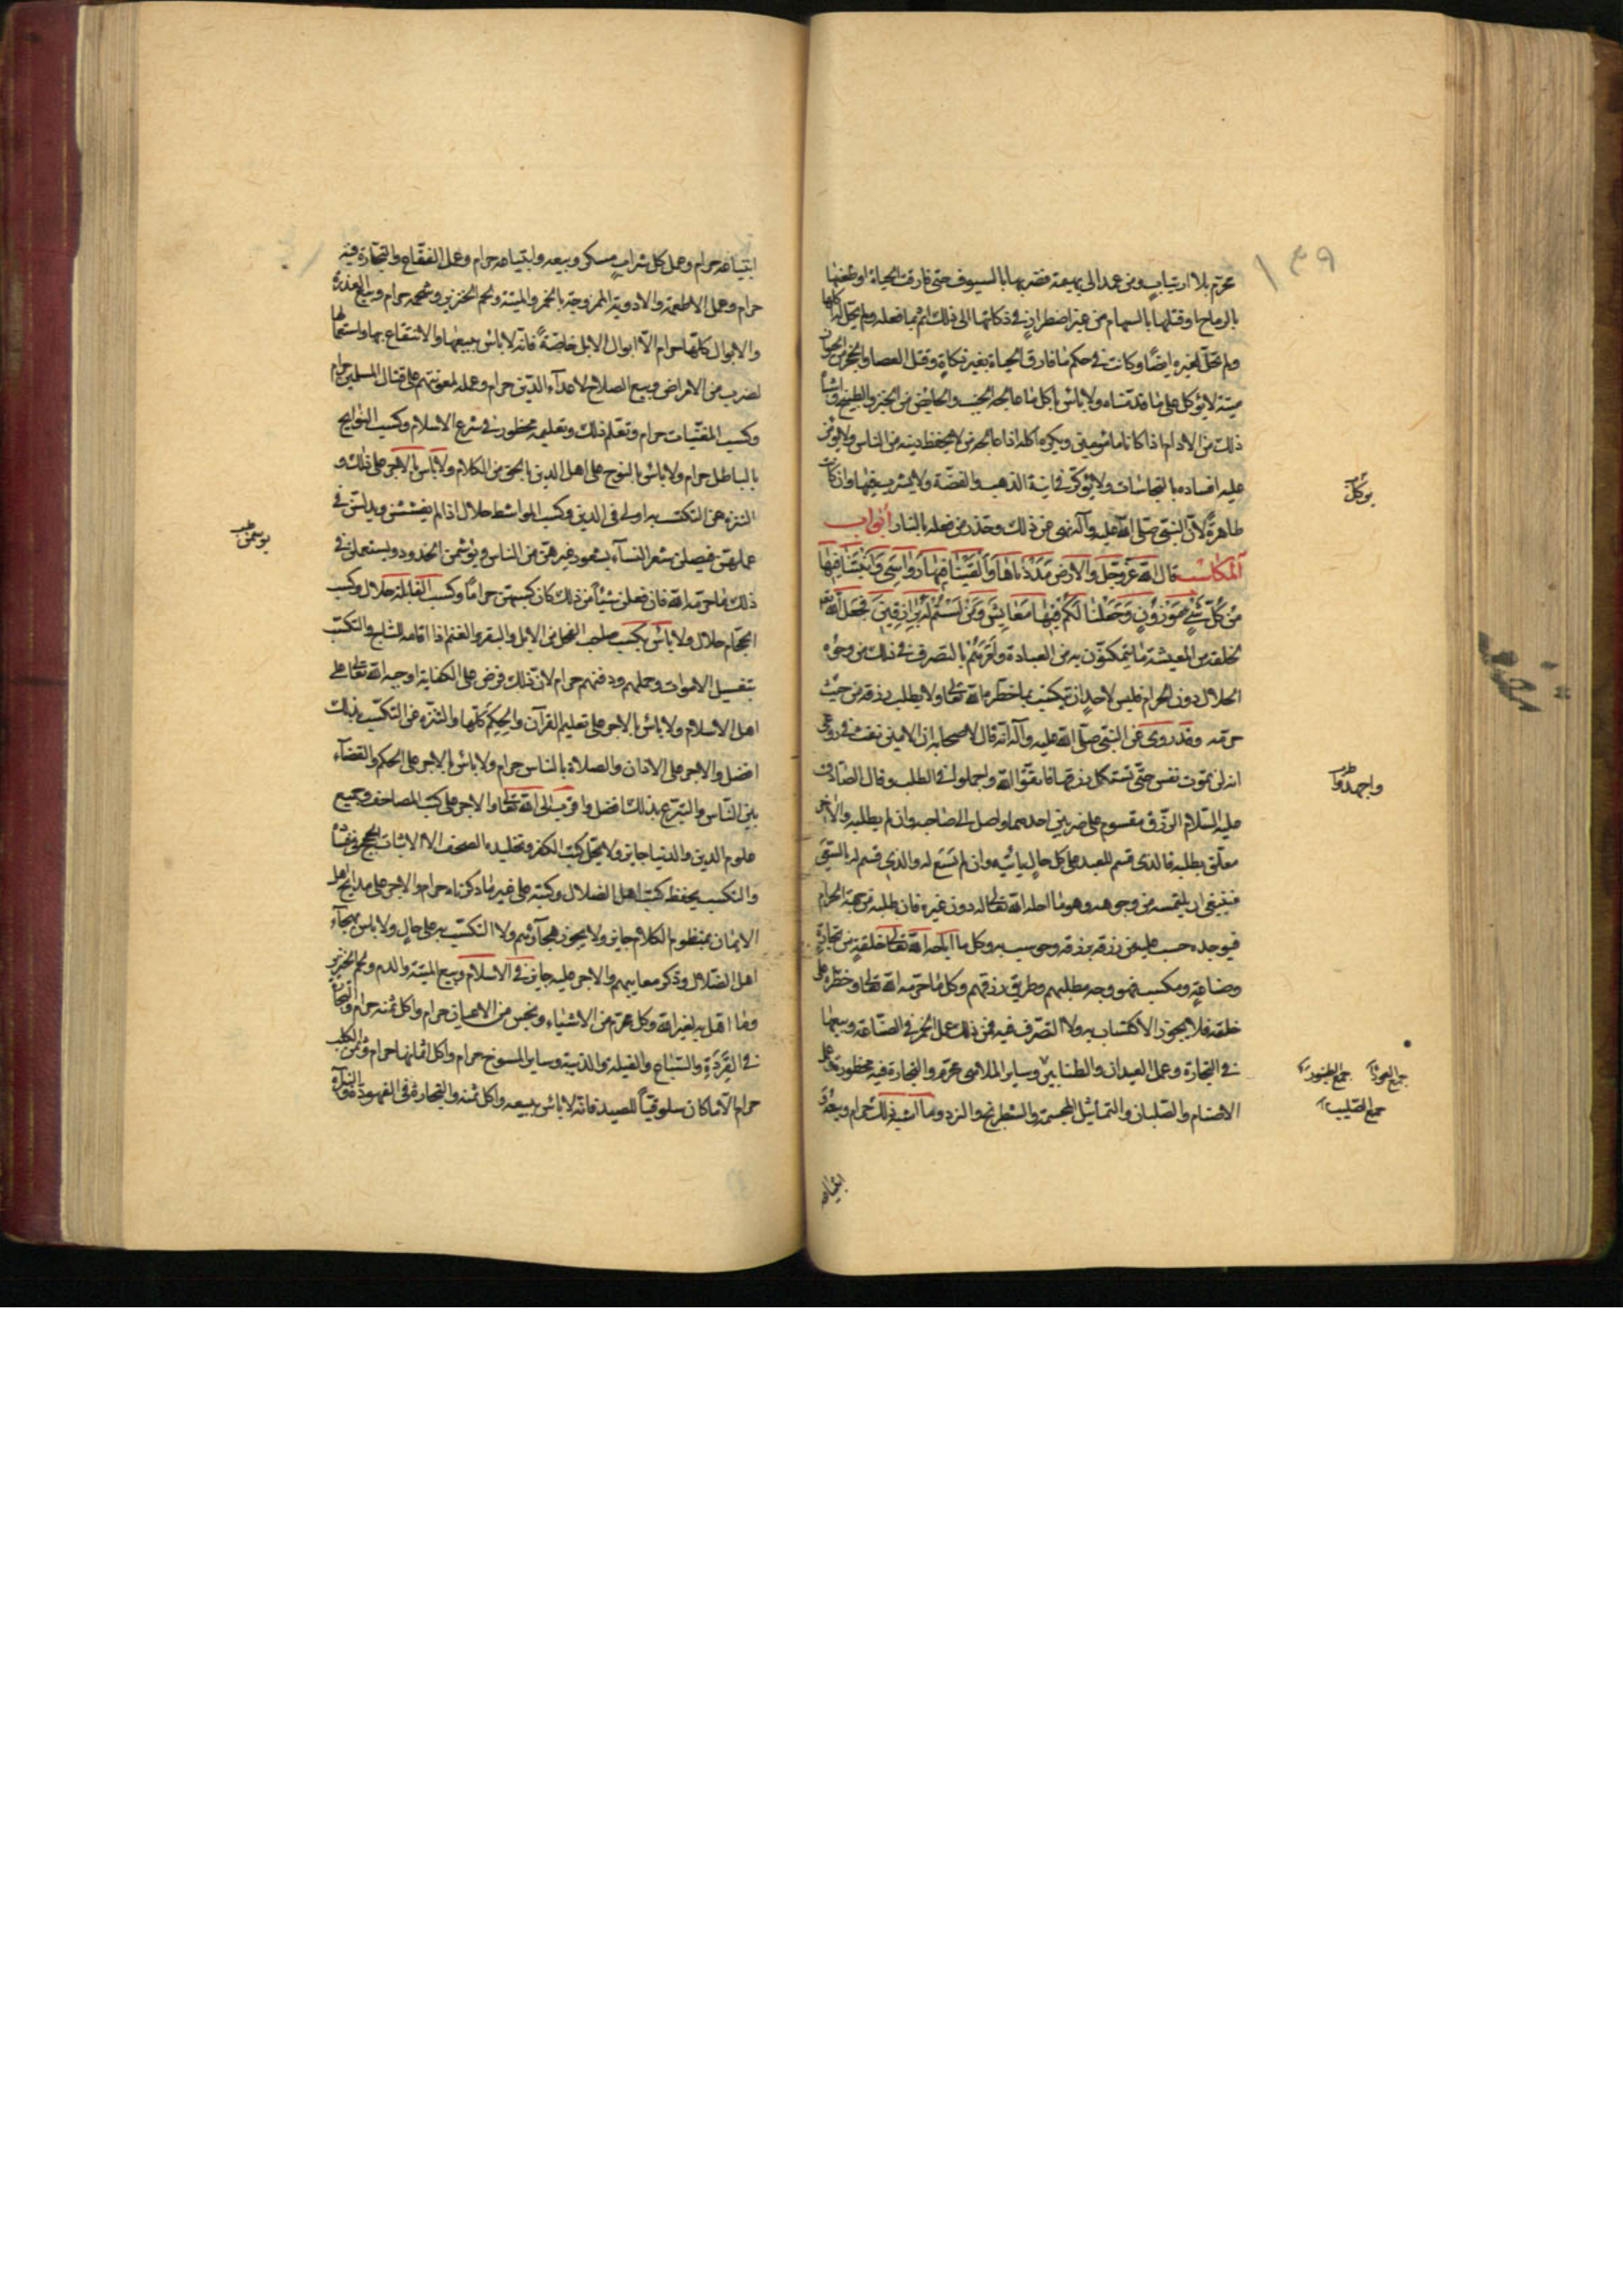 محرم بلا ارتياب ومن عمد الى بهيمة فضربها بالسيوف حتى فارقت الحياة او طعنها
بالرماح او قتلها بالسهام من غير اضطرار في ذكاتها الى ذلك اثم بما فعله ولم يحل له اكلها
ولم تحل لغيره ايضًا وكانت في حكم ما فارق الحياة بغير ذكاةٍ وقتل العصا والحجر من الحيوان
ميتة لا يؤكل على ما قدّمناه ولا باس باكل ما عالجه الجنب والحائض من الخبز والطبيخ واشباه
ذلك من الادام اذا كانا مامونين ويكره اكله اذا عالجه من لا يحفظ دينه من الناس ولا يؤمن
عليه افساده بالنجاسات ولا يؤكل في انية الذهب والفضة ولا يشرب فيها وان كانت
طاهرةً لأن النبي صلى الله عليه وآله نهى عن ذلك وحذر من فعله بالنار أبواب
المكاسب قال الله عز وجل والارض مددناها وألقينا فيها رواسي وأنبتنا فيها
من كل شيءٍ موزونٍ وجعلنا لكم فيها معايش ومن لستم له برازقين فجعل الله تعالى
لخلقه من المعيشة ما يتمكنون به من العبادة وأمرهم بالتصرف في ذلك من وجوه
الحلال دون الحرام فليس لاحدٍ ان يتكسب بما حظره الله تعالى ولا يطلب رزقه من حيث
حرمه وقد روى عن النبي صلى الله عليه وآله انه قال لاصحابه ان الامين نفث في روعى
انه لن تموت نفس حتى تستكمل رزقها فاتقوا الله واجملوا في الطلب وقال الصادق
عليه السلام الرزق مقسوم على ضربين احدهما واصل الى صاحبه وان لم يطلبه والآخر
معلق بطلبه فالذى قسم للعبد على كل حالٍ ياتيه وان لم يسع له والذى قسم له بالسعى
فينبغى ان يلتمسه من وجوهه وهو ما احله الله تعالى له دون غيره فان طلبه من جهة الحرام
فوجده حسب عليه من رزقه برزقه وحوسب به وكل ما اباحه الله تعالى لخلقه من تجارةٍ
وصناعةٍ ومكسب فهو وجه مطلبهم وطريق رزقهم وكل ما حرمه الله تعالى وحظره على
خلقه فلا يجوز الاكتساب به ولا التصرف فيه فمن ذلك عمل الخمر في الصناعة وبيعها
في التجارة وعمل العيدان والطنابير وساير الملاهى محرم والتجارة فيه محظورة وعمل
الاصنام والصلبان والتماثيل المجسمة والشطرنج والنرد وما اشبه ذلك حرام وبيعه و
ابتياعه
يوكل
واجهدوا
جمع العود جمع الطنبور
جمع الصليب
ابتياعه حرام وعمل كل شرابٍ مسكر وبيعه وابتياعه حرام وعمل الفقاع والتجارة فيه
حرام وعمل الاطعمة والادوية الممزوجة بالخمر والميتة ولحم الخنزير وشحمه حرام وبيع العذرة
والابوال كلها حرام الا ابوال الابل خاصةً فانه لا باس ببيعها والانتفاع بها واستعمالها
لضرب من الامراض وبيع السلاح لاعدآء الدين حرام وعمله لمعونتهم على قتال المسلمين حرام
وكسب المغنيات حرام وتعلم ذلك وتعليمه محظور في شرع الاسلام وكسب النوايح
بالباطل حرام ولا باس بالنوح على اهل الدين بالحق من الكلام ولا باس بالاجر على ذلك و
التنزه عن التكسب به اولى في الدين وكسب المواشط حلال اذا لم يغششن ويدلسن في
عملهن فيصلن شعر النسآء بشعور غيرهن من الناس ويوشمن الخدود ويستعملن في
ذلك ما حرمه الله فان فعلن شيئًا من ذلك كان كسبهن حرامًا وكسب القابلة حلال وكسب
الحجام حلال ولا باس بكسب صاحب الفحل من الابل والبقر والغنم اذا اقامه للنتاج والتكسب
بتغسيل الاموات وحملهم ودفنهم حرام لان ذلك فرض على الكفاية اوجبه الله تعالى على
اهل الاسلام ولا باس بالاجر على تعليم القرآن والحكم كلها والتنزه عن التكسب بذلك
افضل والاجر على الاذان والصلاة بالناس حرام ولا باس بالاجر على الحكم والقضآء
بين الناس والتبرع بذلك افضل واقرب الى الله تعالى والاجر على كتب المصاحف وجميع
علوم الدين والدنيا جايز ولا يحل كتب الكفر وتخليده الصحف الا لاثبات الحجج في فساده
والتكسب بحفظ كتب اهل الضلال وكتبه على غير ما ذكرناه حرام والاجر على مدايح اهل
الايمان بمنظوم الكلام جايز ولا يجوز هجآؤهم ولا التكسب به على حالٍ ولا باس بهجآء
اهل الضلال وذكر معايبهم والاجر عليه جايز في الاسلام وبيع الميتة والدم ولحم الخنزير
وما اهل به لغير الله وكل محرم من الاشياء ونجس من الاعيان حرام واكل ثمنه حرام والتجارة
في القردة والسباع والفيلة والدببة وساير المسوخ حرام واكل اثمانها حرام وثمن الكلب
حرام الا ما كان سلوقيًا للصيد فانه لا باس ببيعه واكل ثمنه والتجارة في الفهود والبزاة
يوسمن